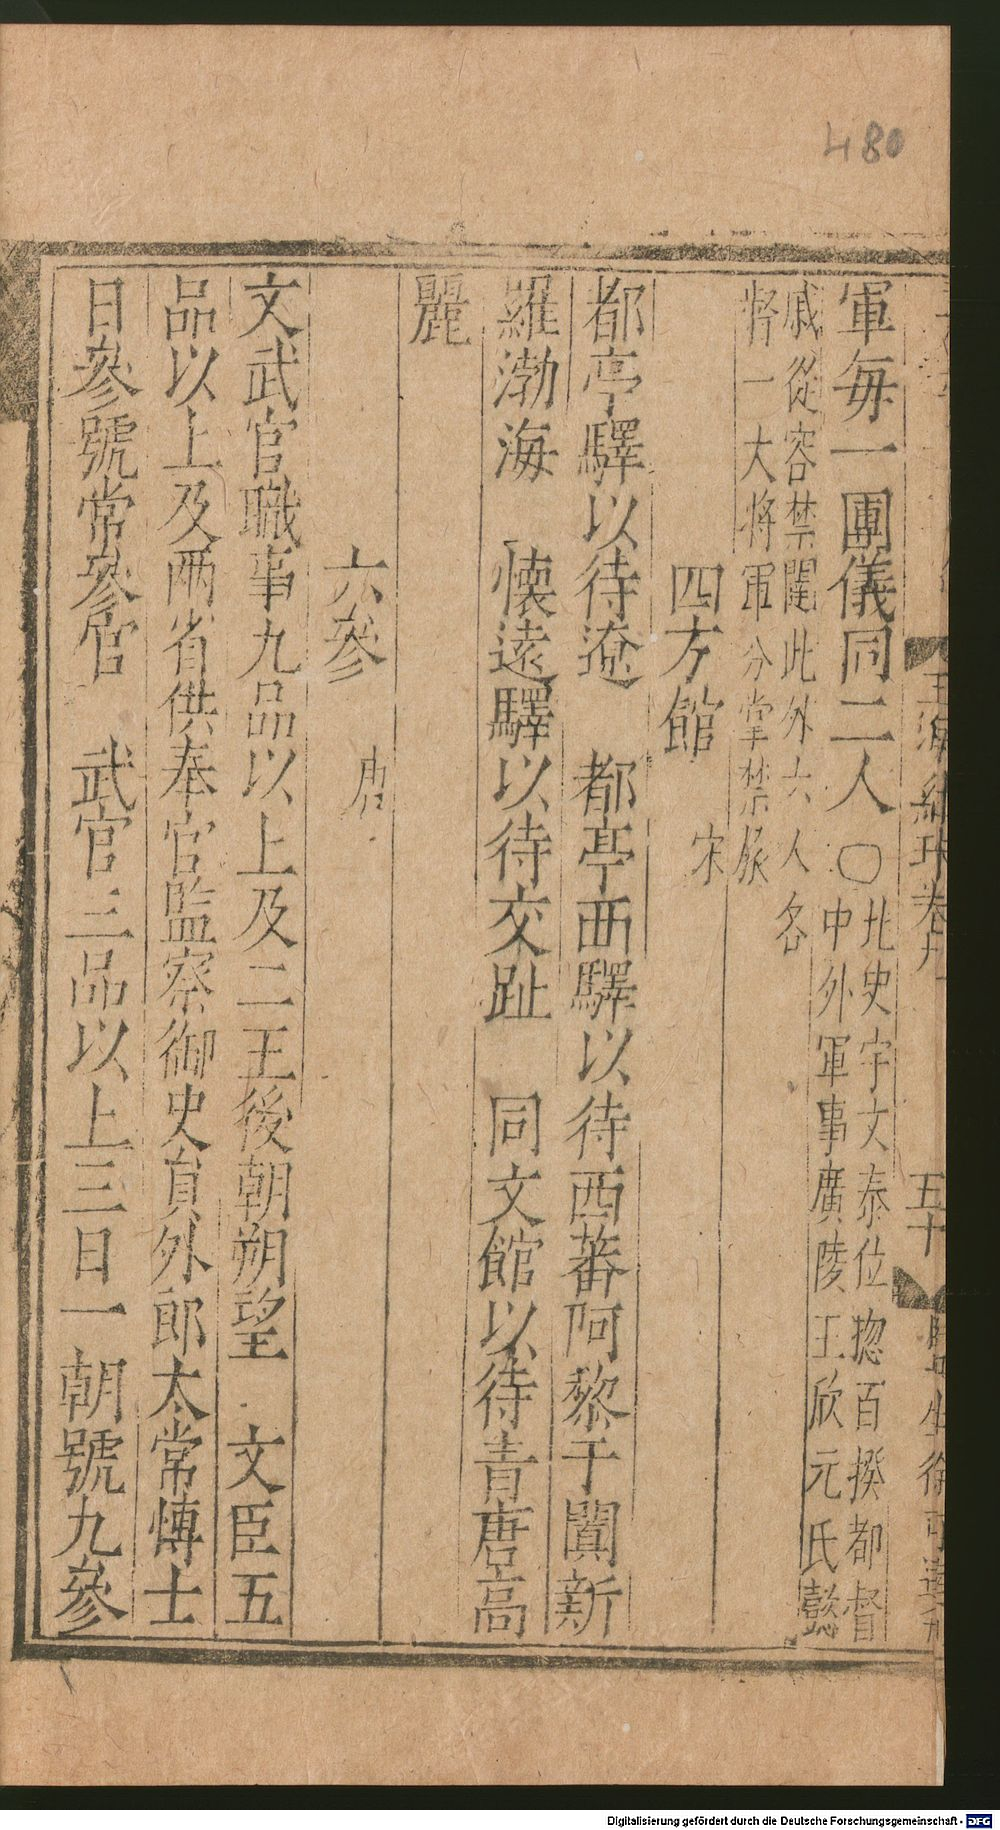 480
玉海紀珠卷九
五十
軍每一團儀同二人 ○ 北史宇文泰位揔百揆都督
中外軍事廣陵王欣元氏懿
戚從容禁闥此外六人各
督一大將軍分掌禁旅
四方館 宋
都亭驛以待遼 都亭西驛以待西蕃阿黎于闐新
羅渤海 懷遠驛以待交趾 同文館以待青唐高
麗
六參 唐
文武官職事九品以上及二王後朝朔望 文臣五
品以上及两省供奉官監察御史負外郎太常博士
日參號常參官 武官三品以上三日一朝號九參
Digitalisierung gefördert durch die Deutsche Forschungsgemeinschaft - DFG